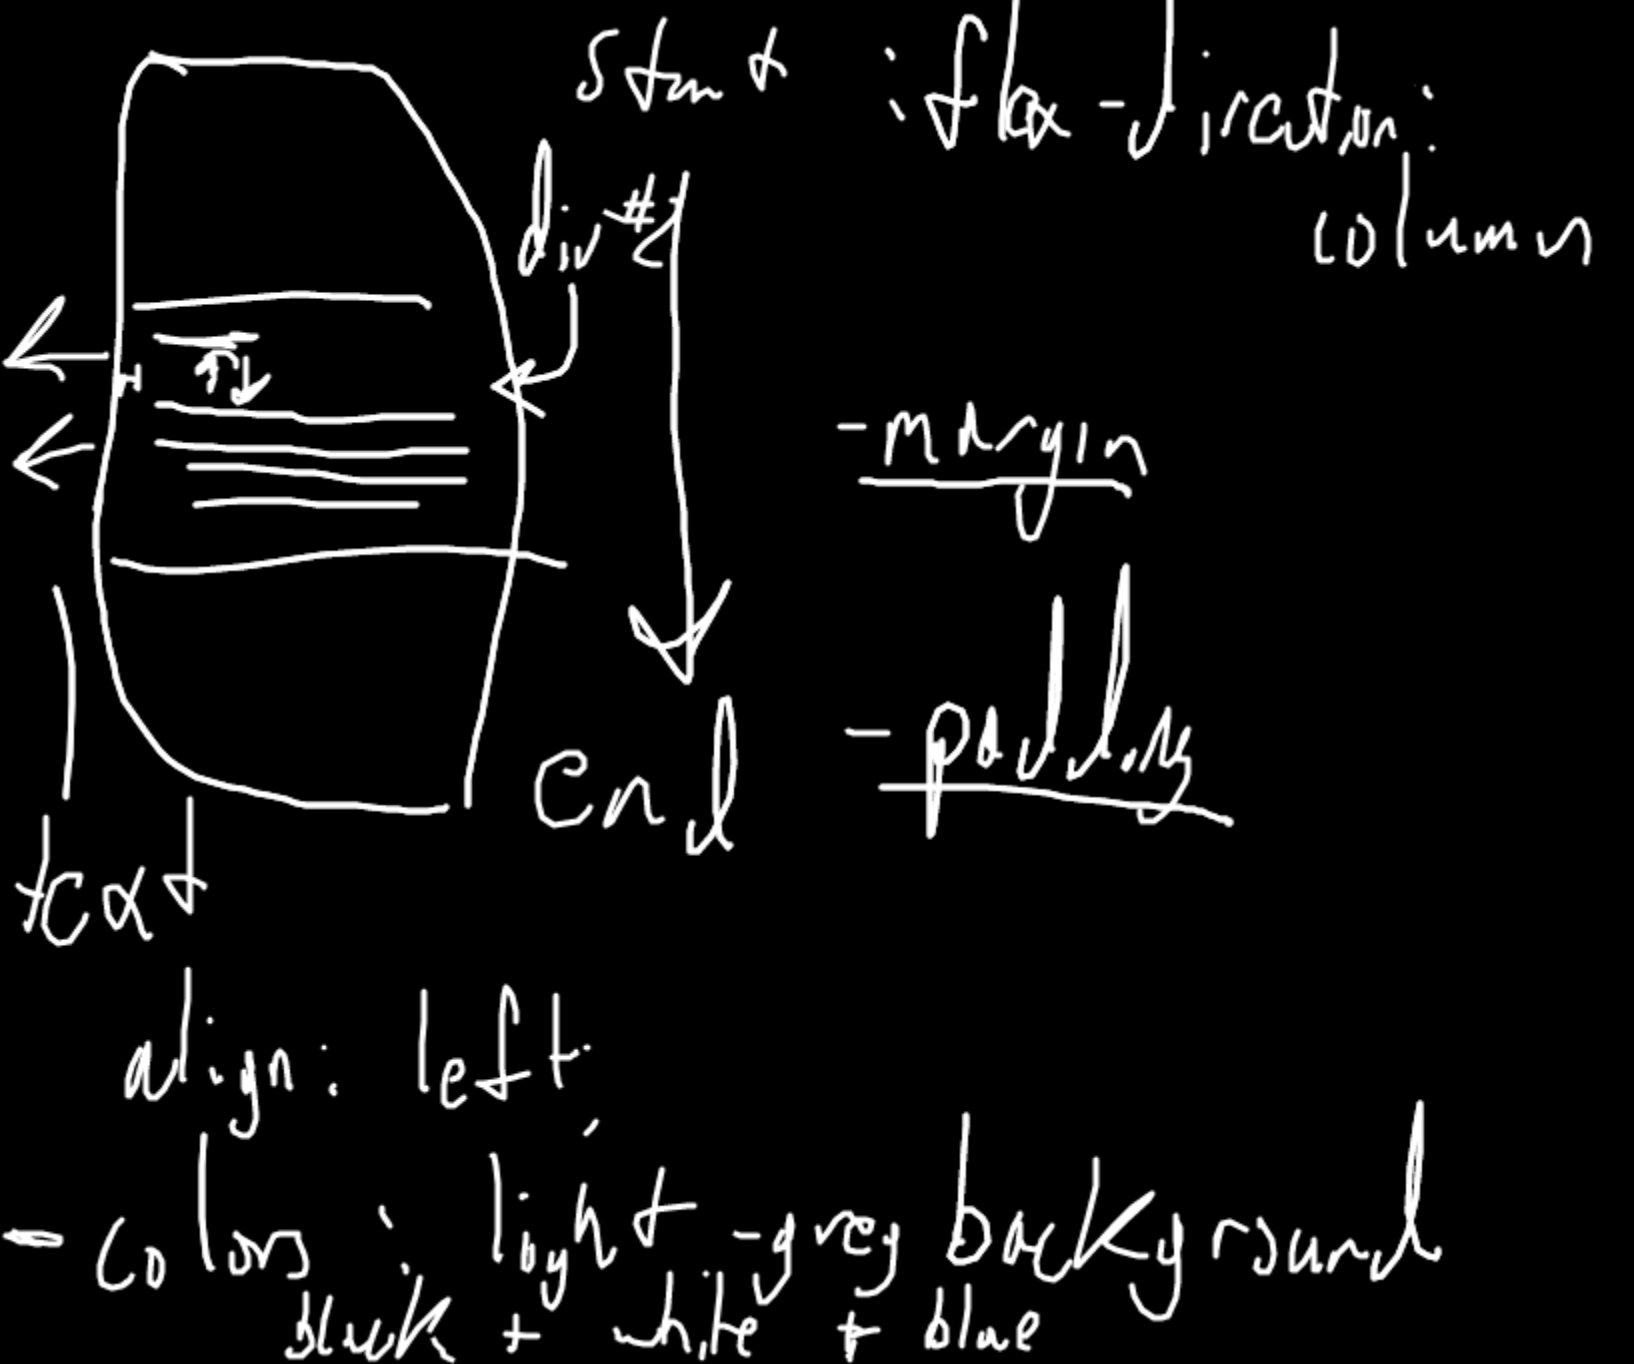 start : flex-direction:
column
div #2
- margin
- padding
end
text
align: left;
- colors : light-grey background
black + white + blue